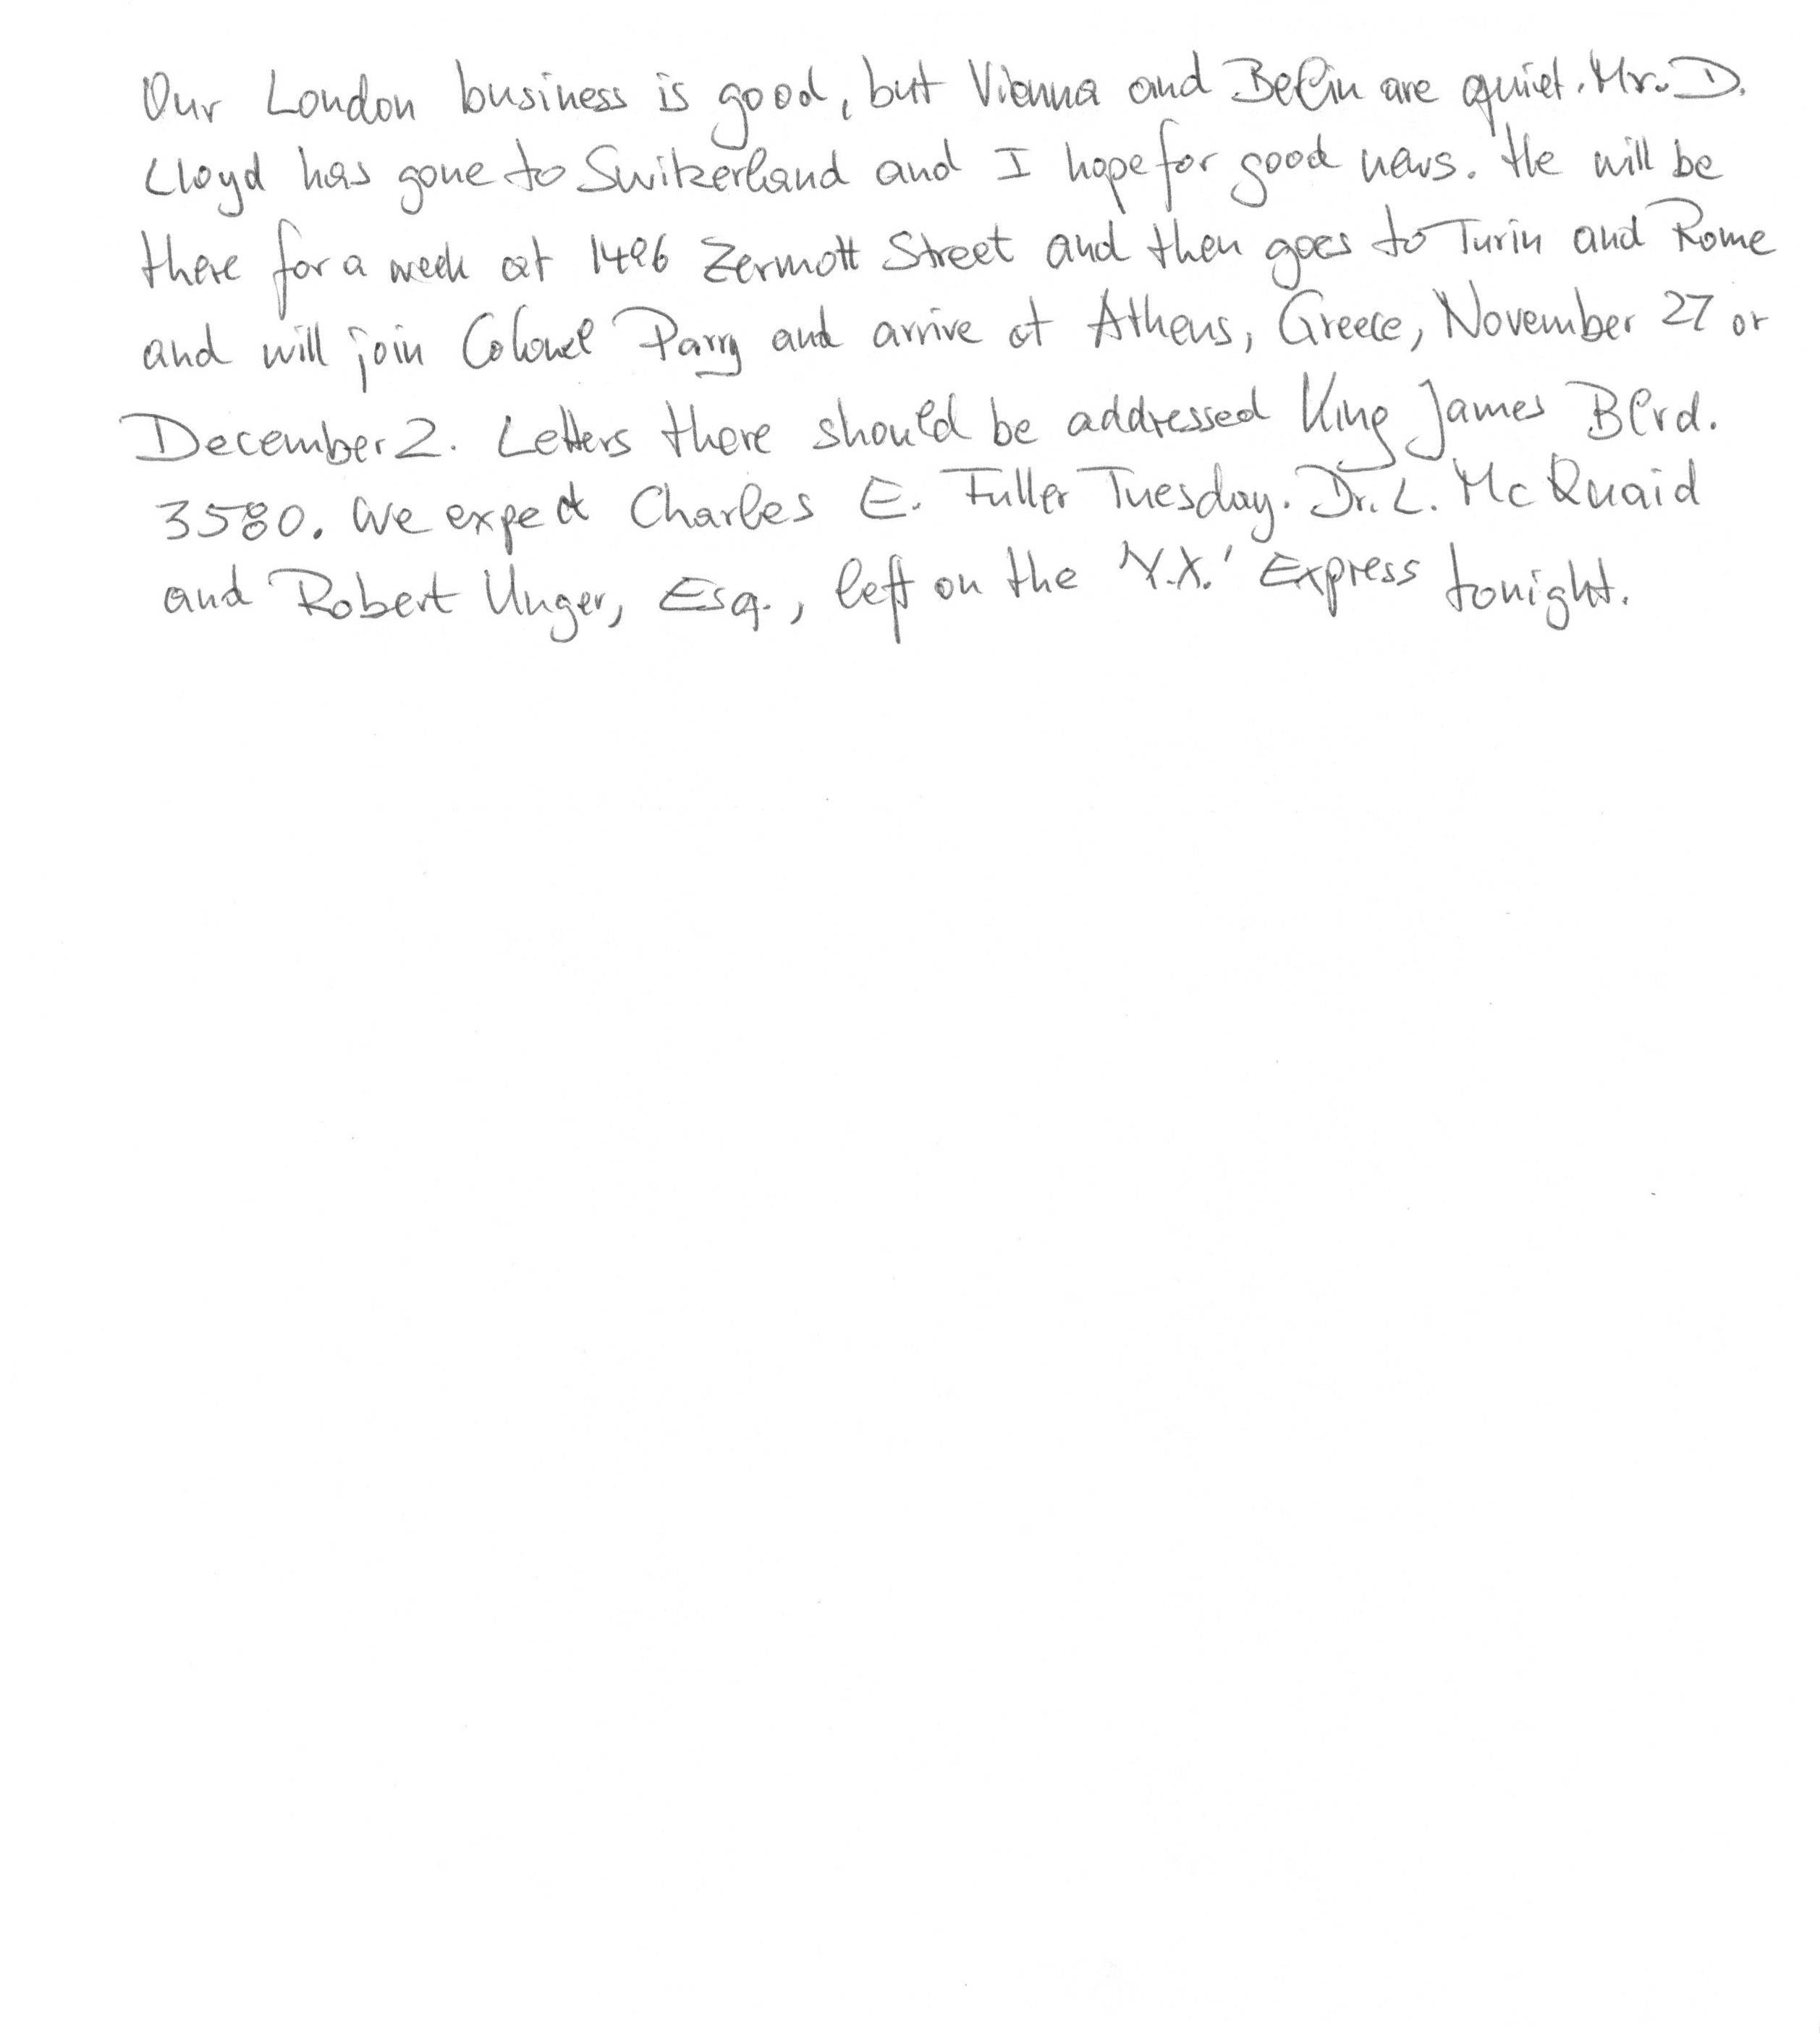 Our London business is good, but Vienna and Belin are quiet. Mr. D.
Lloyd has gone to Switzerland and I hope for good news. He will be
there for a week at 1496 Zermott Street and then goes to Turin and Rome
and will join Colonel Parry and arrive at Athens, Greece, November 27 or
December 2. Letters there should be addressed King James Blvd.
3580. We expect Charles E. Fuller Tuesday. Dr. L. McQuaid
and Robert Unger, Esq., left on the 'Y.X.' Express tonight.